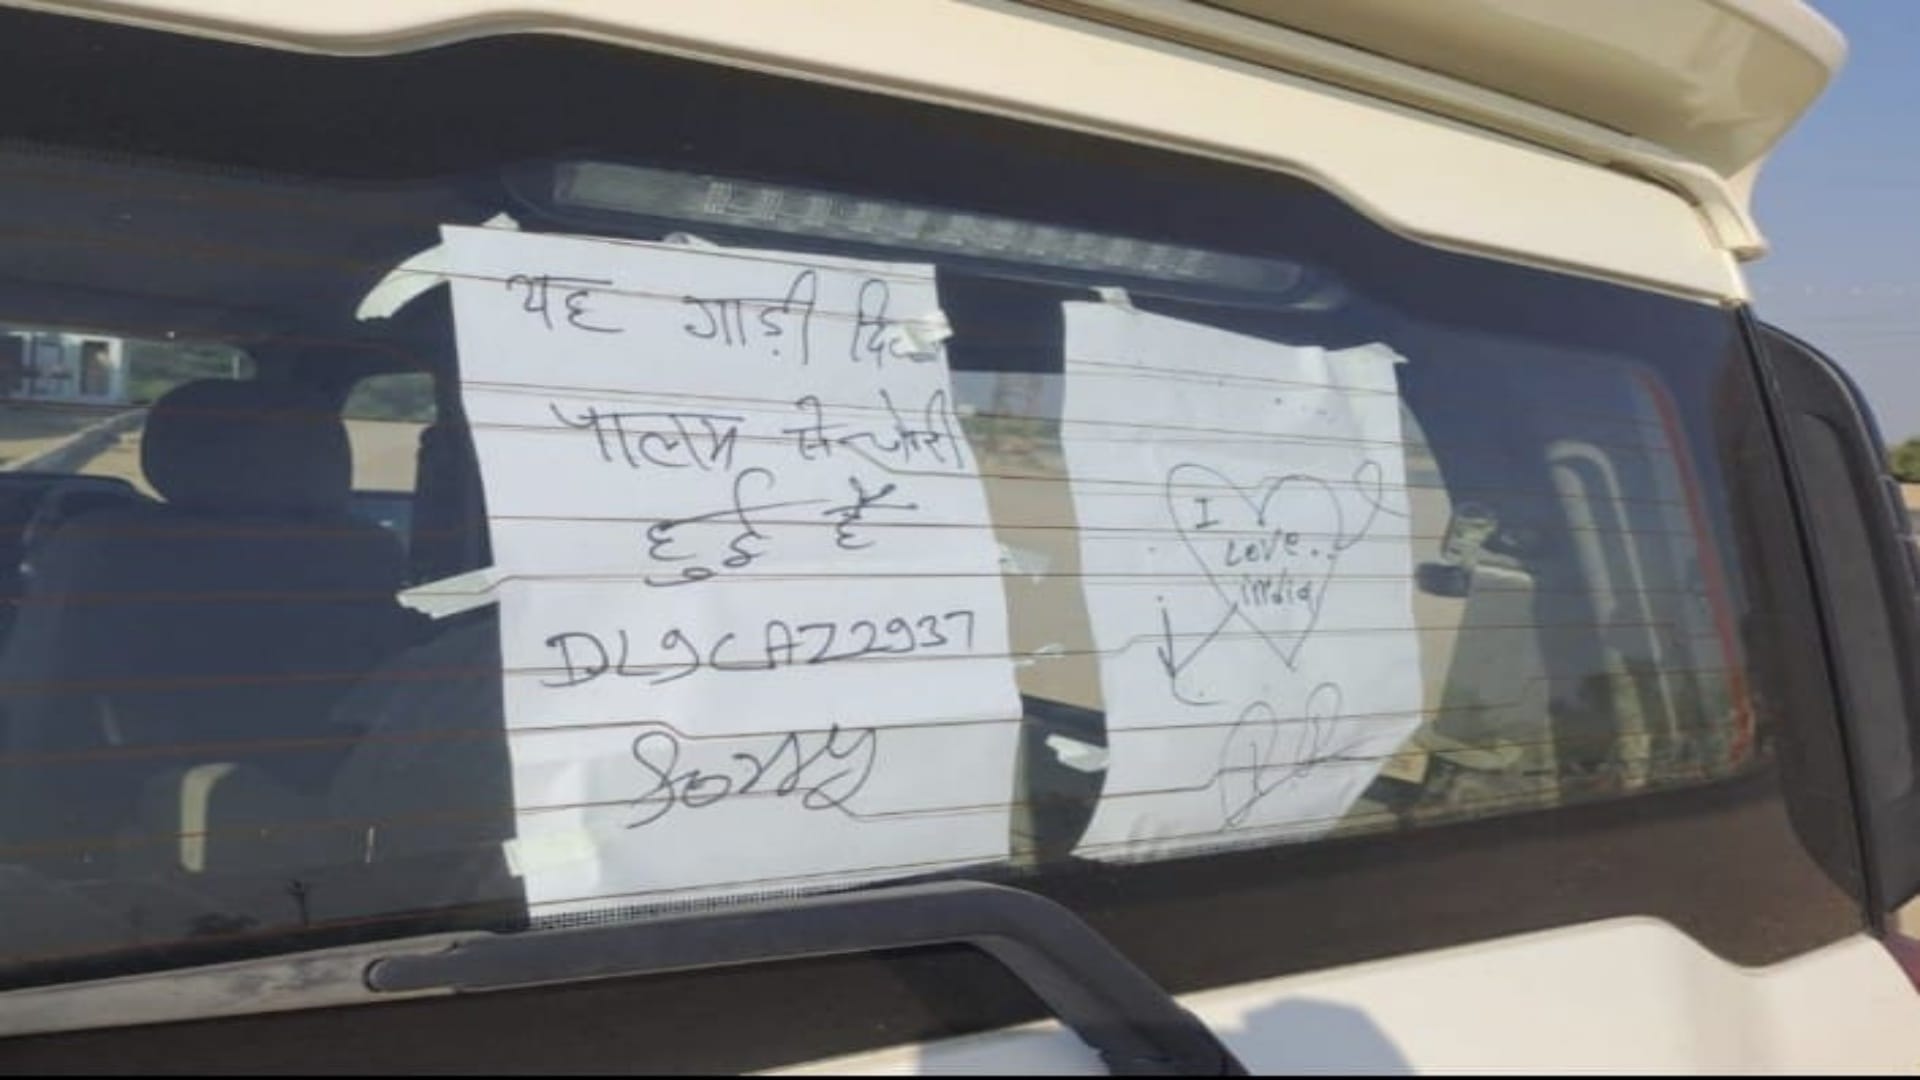 यह गाड़ी
पालम से चोरी
हुई है
DL9CAZ2937
Sorry
I
Love..
india